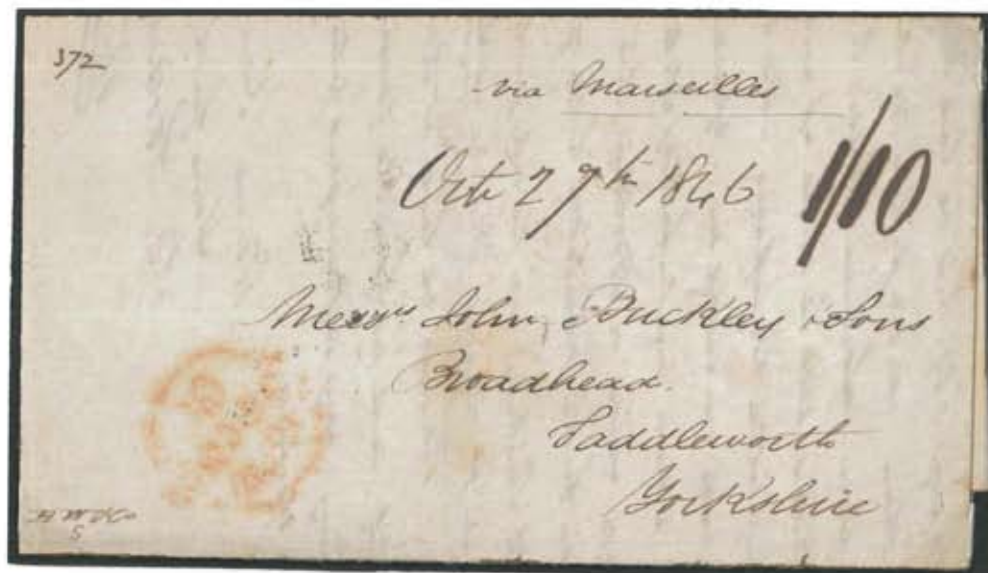 372
via Marseilles
Octr 27th 1846
1/10
Messrs John Buckley & Sons
Broadhead
Saddleworth
Yorkshire
5